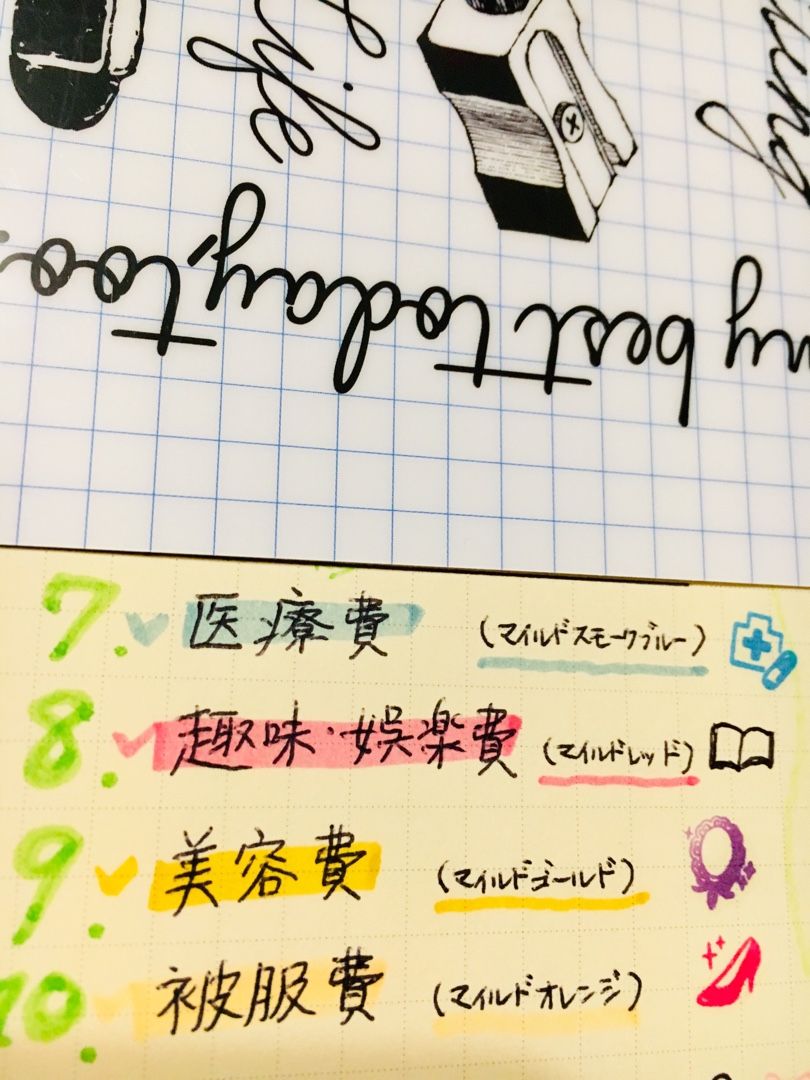 ing
life
my best today, too.
7. 医療費 (マイルドスモークブルー)
8. 趣味・娯楽費 (マイルドレッド)
9. 美容費 (マイルドゴールド)
10. 被服費 (マイルドオレンジ)